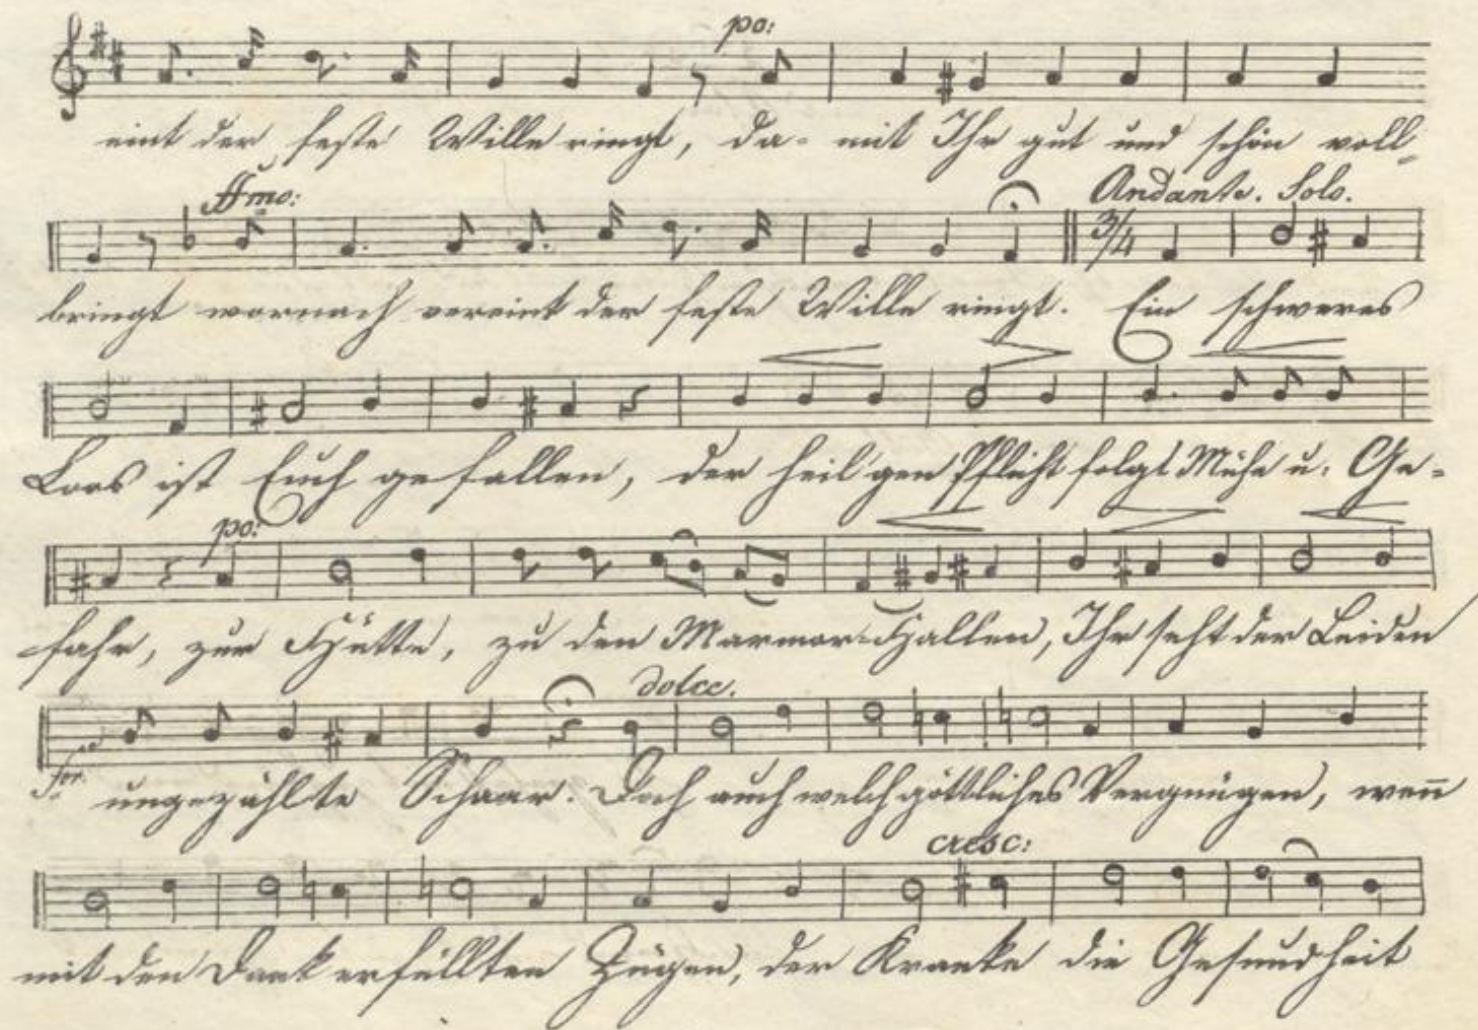 po:
eint der feste Wille ringt, da- mit Ihr gut und schön voll-
ffmo: Andante. Solo.
3/4
bringt wornach vereint der feste Wille ringt. Ein schweres
Loos ist Euch gefallen, der heilgen Pflicht folgt Mühe u: Ge-
po:
fahr, zur Hütte, zu den Marmor-Hallen, Ihr seht der Leiden
dolce.
for.
ungezählte Schaar. Doch auch welch göttliches Vergnügen, weñ
cresc:
mit den Dank erfüllten Zügen, der Kranke die Gesundheit